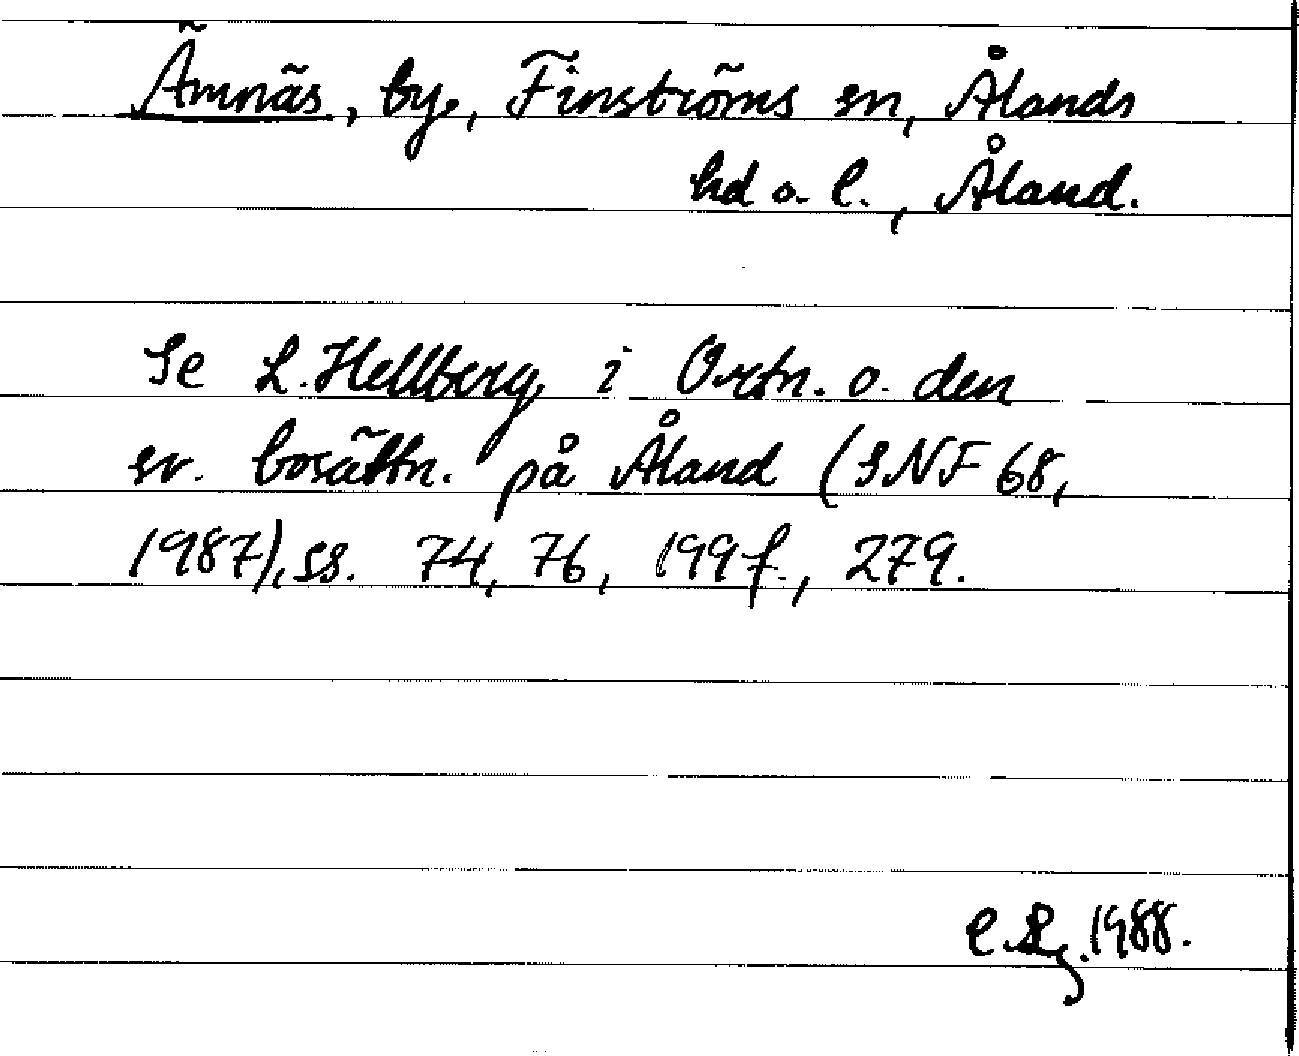 Ämnäs, by, Finströms sn, Ålands
hd o. l., Åland.
Se L. Hellberg i Ortn. o. den
sv. bosättn. på Åland (SNF 68,
1987), ss. 74, 76, 199 f., 279.
1988.